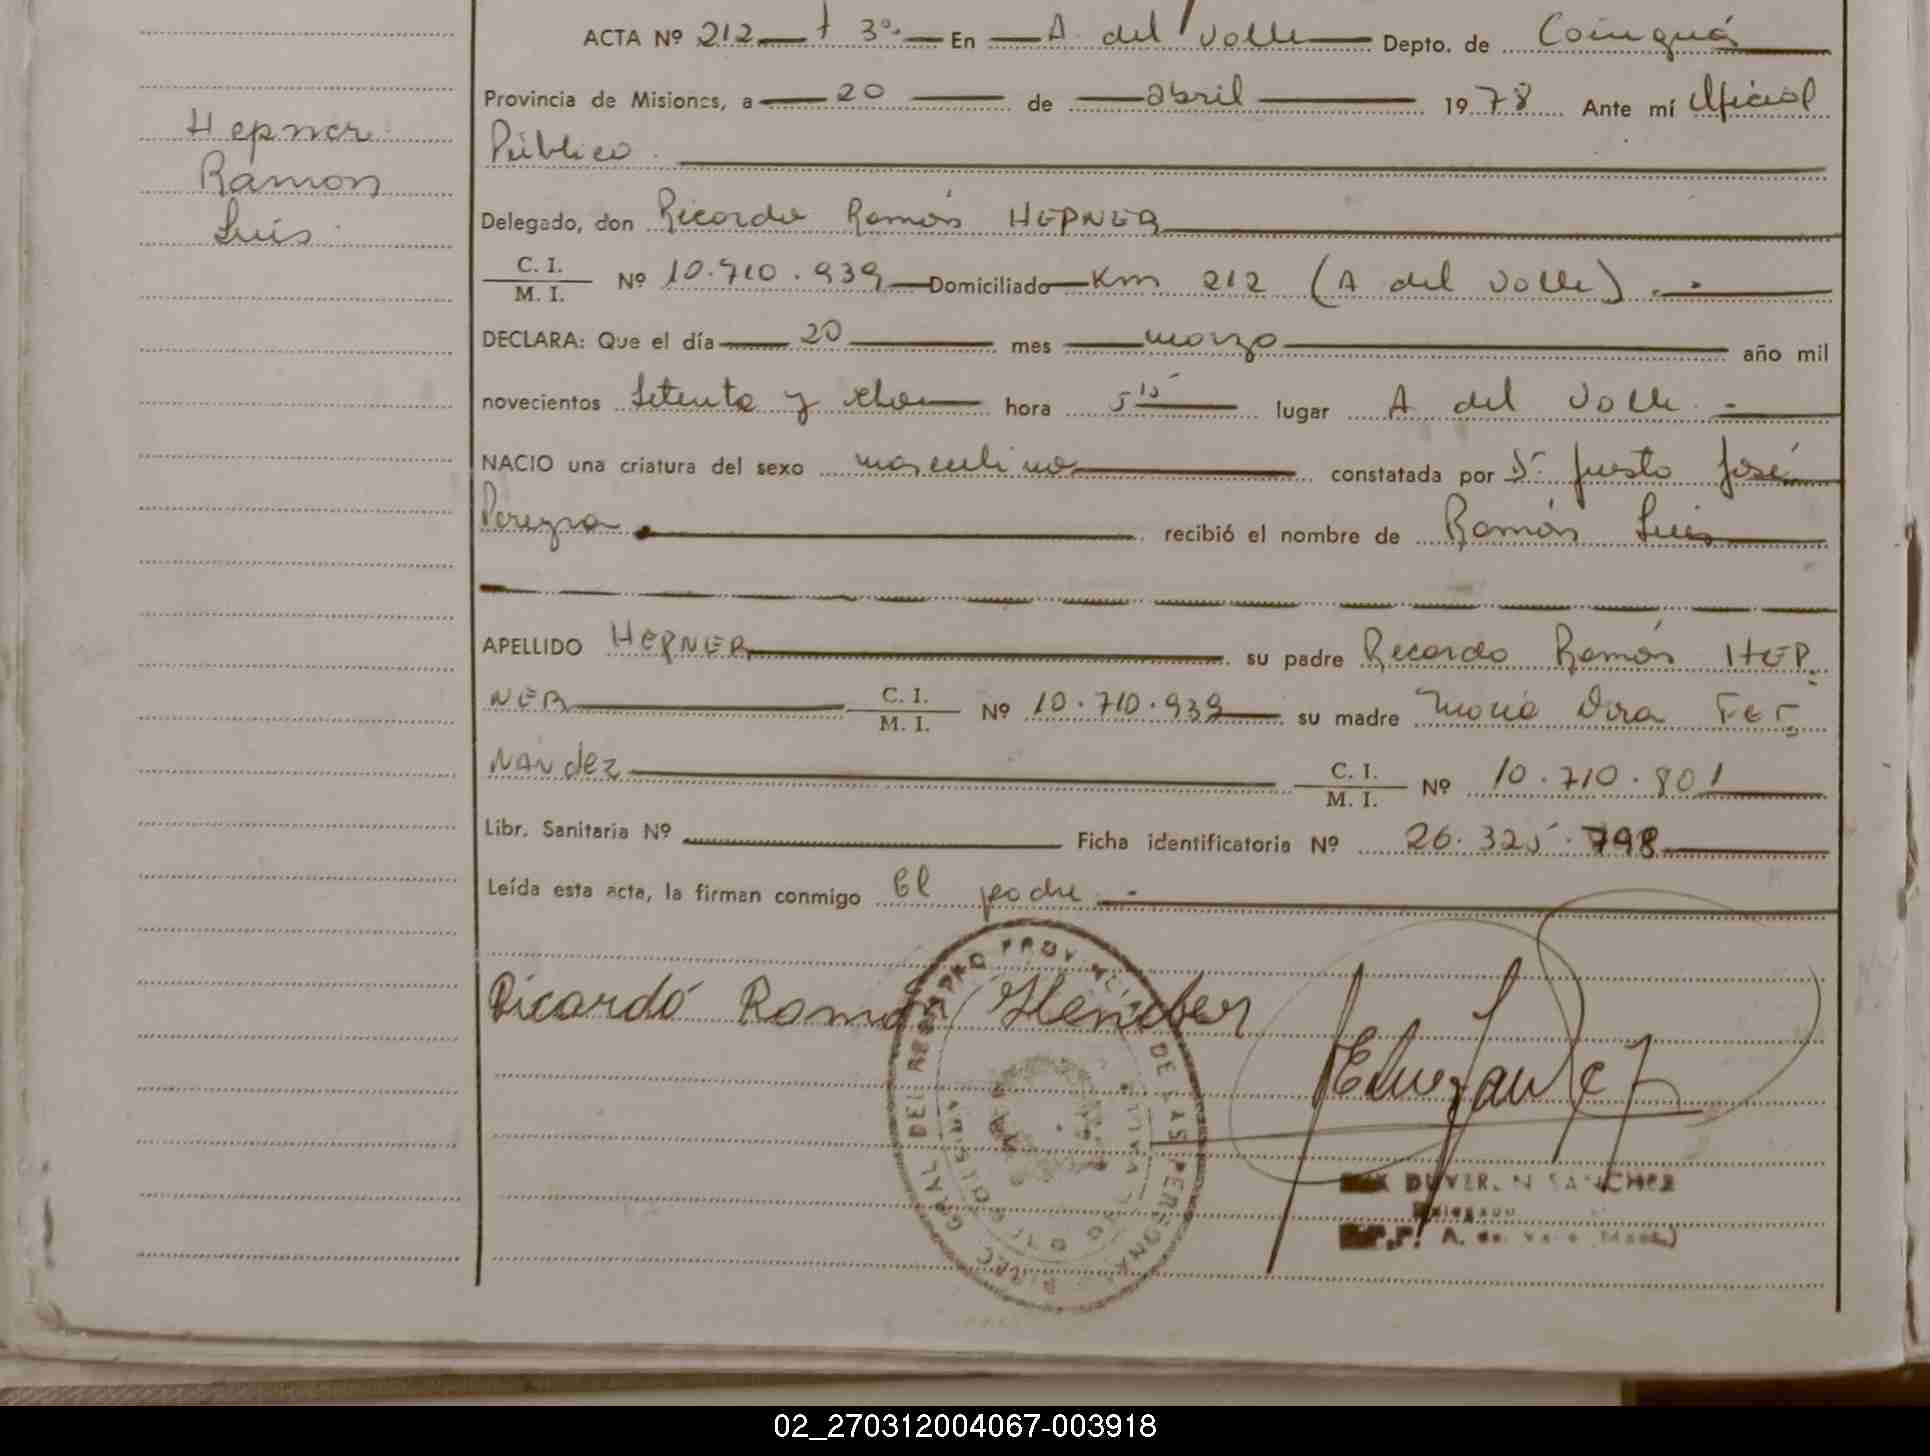 ACTA Nº 212 t 3º En A. del Valle Depto. de Cainguá
Provincia de Misiones, a 20 de abril 1978 Ante mí Oficial
Público
Hepner
Ramon
Luis
Delegado, don Ricardo Ramón HEPNER
C. I.
M. I. Nº 10.710.939 Domiciliado Km 212 (A del Valle).
DECLARA: Que el día 20 mes marzo año mil
novecientos setenta y ocho hora 5 15 lugar A del Valle.
NACIO una criatura del sexo masculino constatada por Dr Justo José
Pereyra recibió el nombre de Ramón Luis
APELLIDO HEPNER su padre Ricardo Ramón HEP
NER C. I.
M. I. Nº 10.710.939 su madre María Fer
NANdez C. I.
M. I. Nº 10.710.801
Libr. Sanitaria Nº Ficha identificatoria Nº 26.325.798
Leída esta acta, la firman conmigo El padre.
Ricardo Ramon
DIREC. GRAL DEL REG. PROV. DE LAS PERSONAS
SANCHEZ
Delegado
02_270312004067-003918